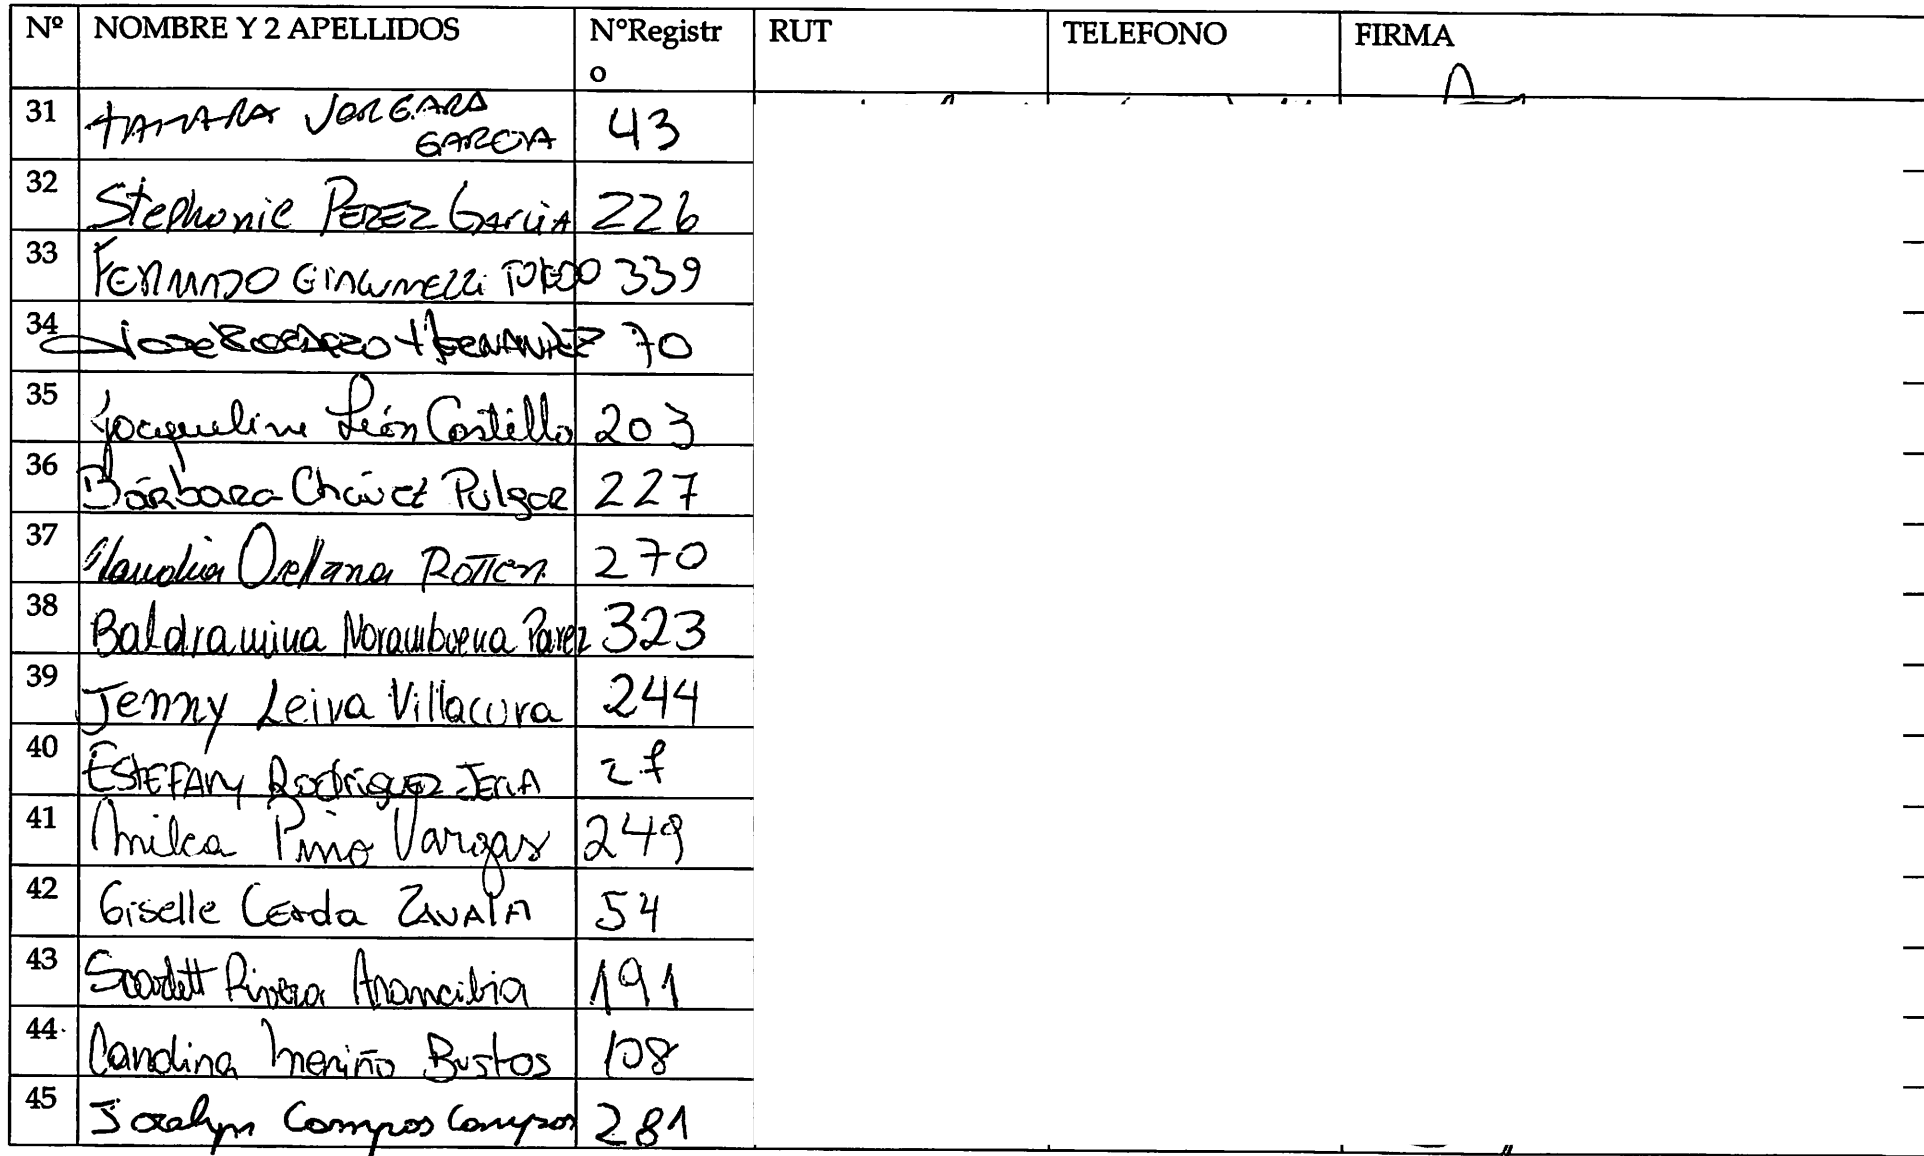 Nº NOMBRE Y 2 APELLIDOS NºRegistr RUT TELEFONO FIRMA
o
31 TAMARA VERGARA 43
GARCIA
32 Stephanie PEREZ GARCIA 226
33 FERNANDO TOLEDO 339
34 JOSE HERNANDEZ 70
35 Jacqueline León Castillo 203
36 Bárbara Chávez Pulgar 227
37 Claudia Orellana 270
38 Baldramina Norambuena Parez 323
39 Jenny Leiva Villacura 244
40 ESTEFANY RodríGUEZ JERIA 27
41 Milca Pino Vargas 249
42 Giselle Cerda ZAVALA 54
43 Scarlett Rivera Arancibia 191
44 Carolina Meriño Bustos 108
45 Jocelyn Campos Campos 281